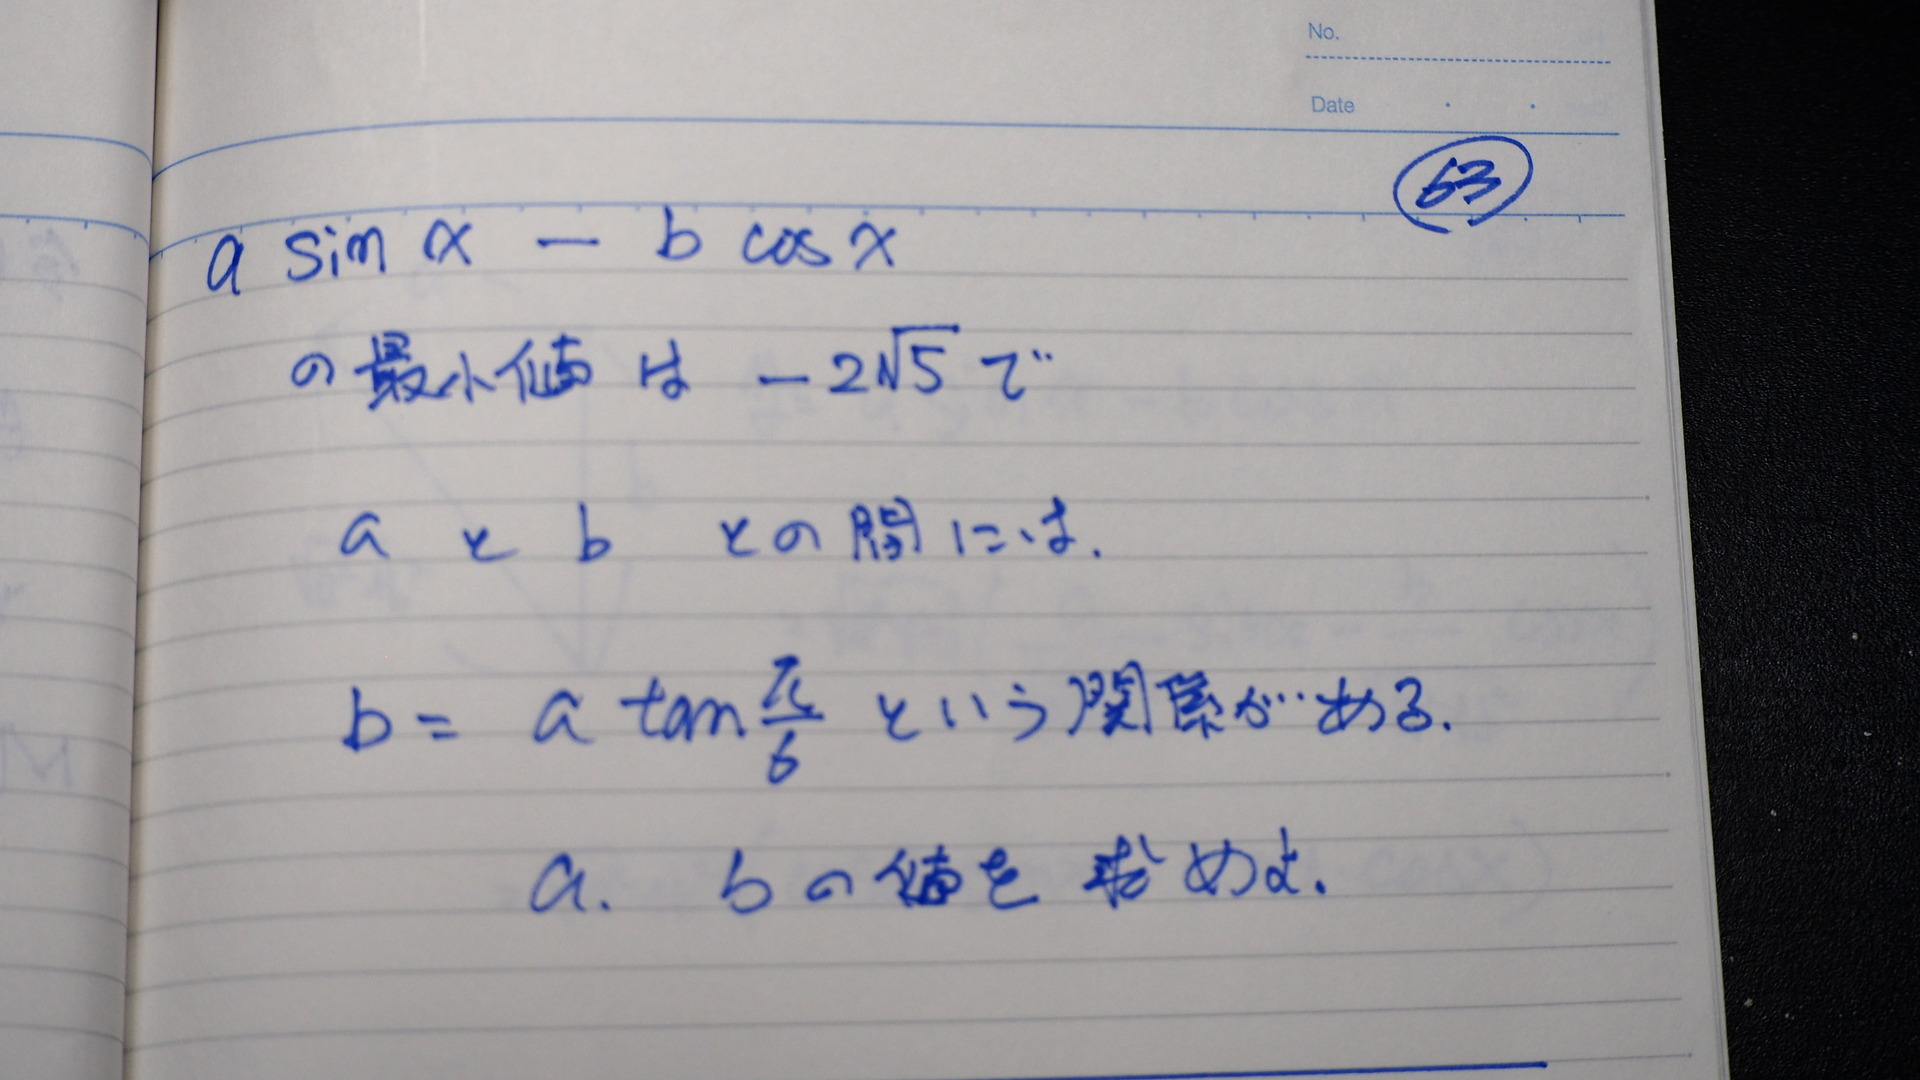 No.
Date
63
a sin x − b cos x
の最小値は −2√5 で
a と b との間には、
b = a tan π/6 という関係がある。
a. bの値を求めよ.